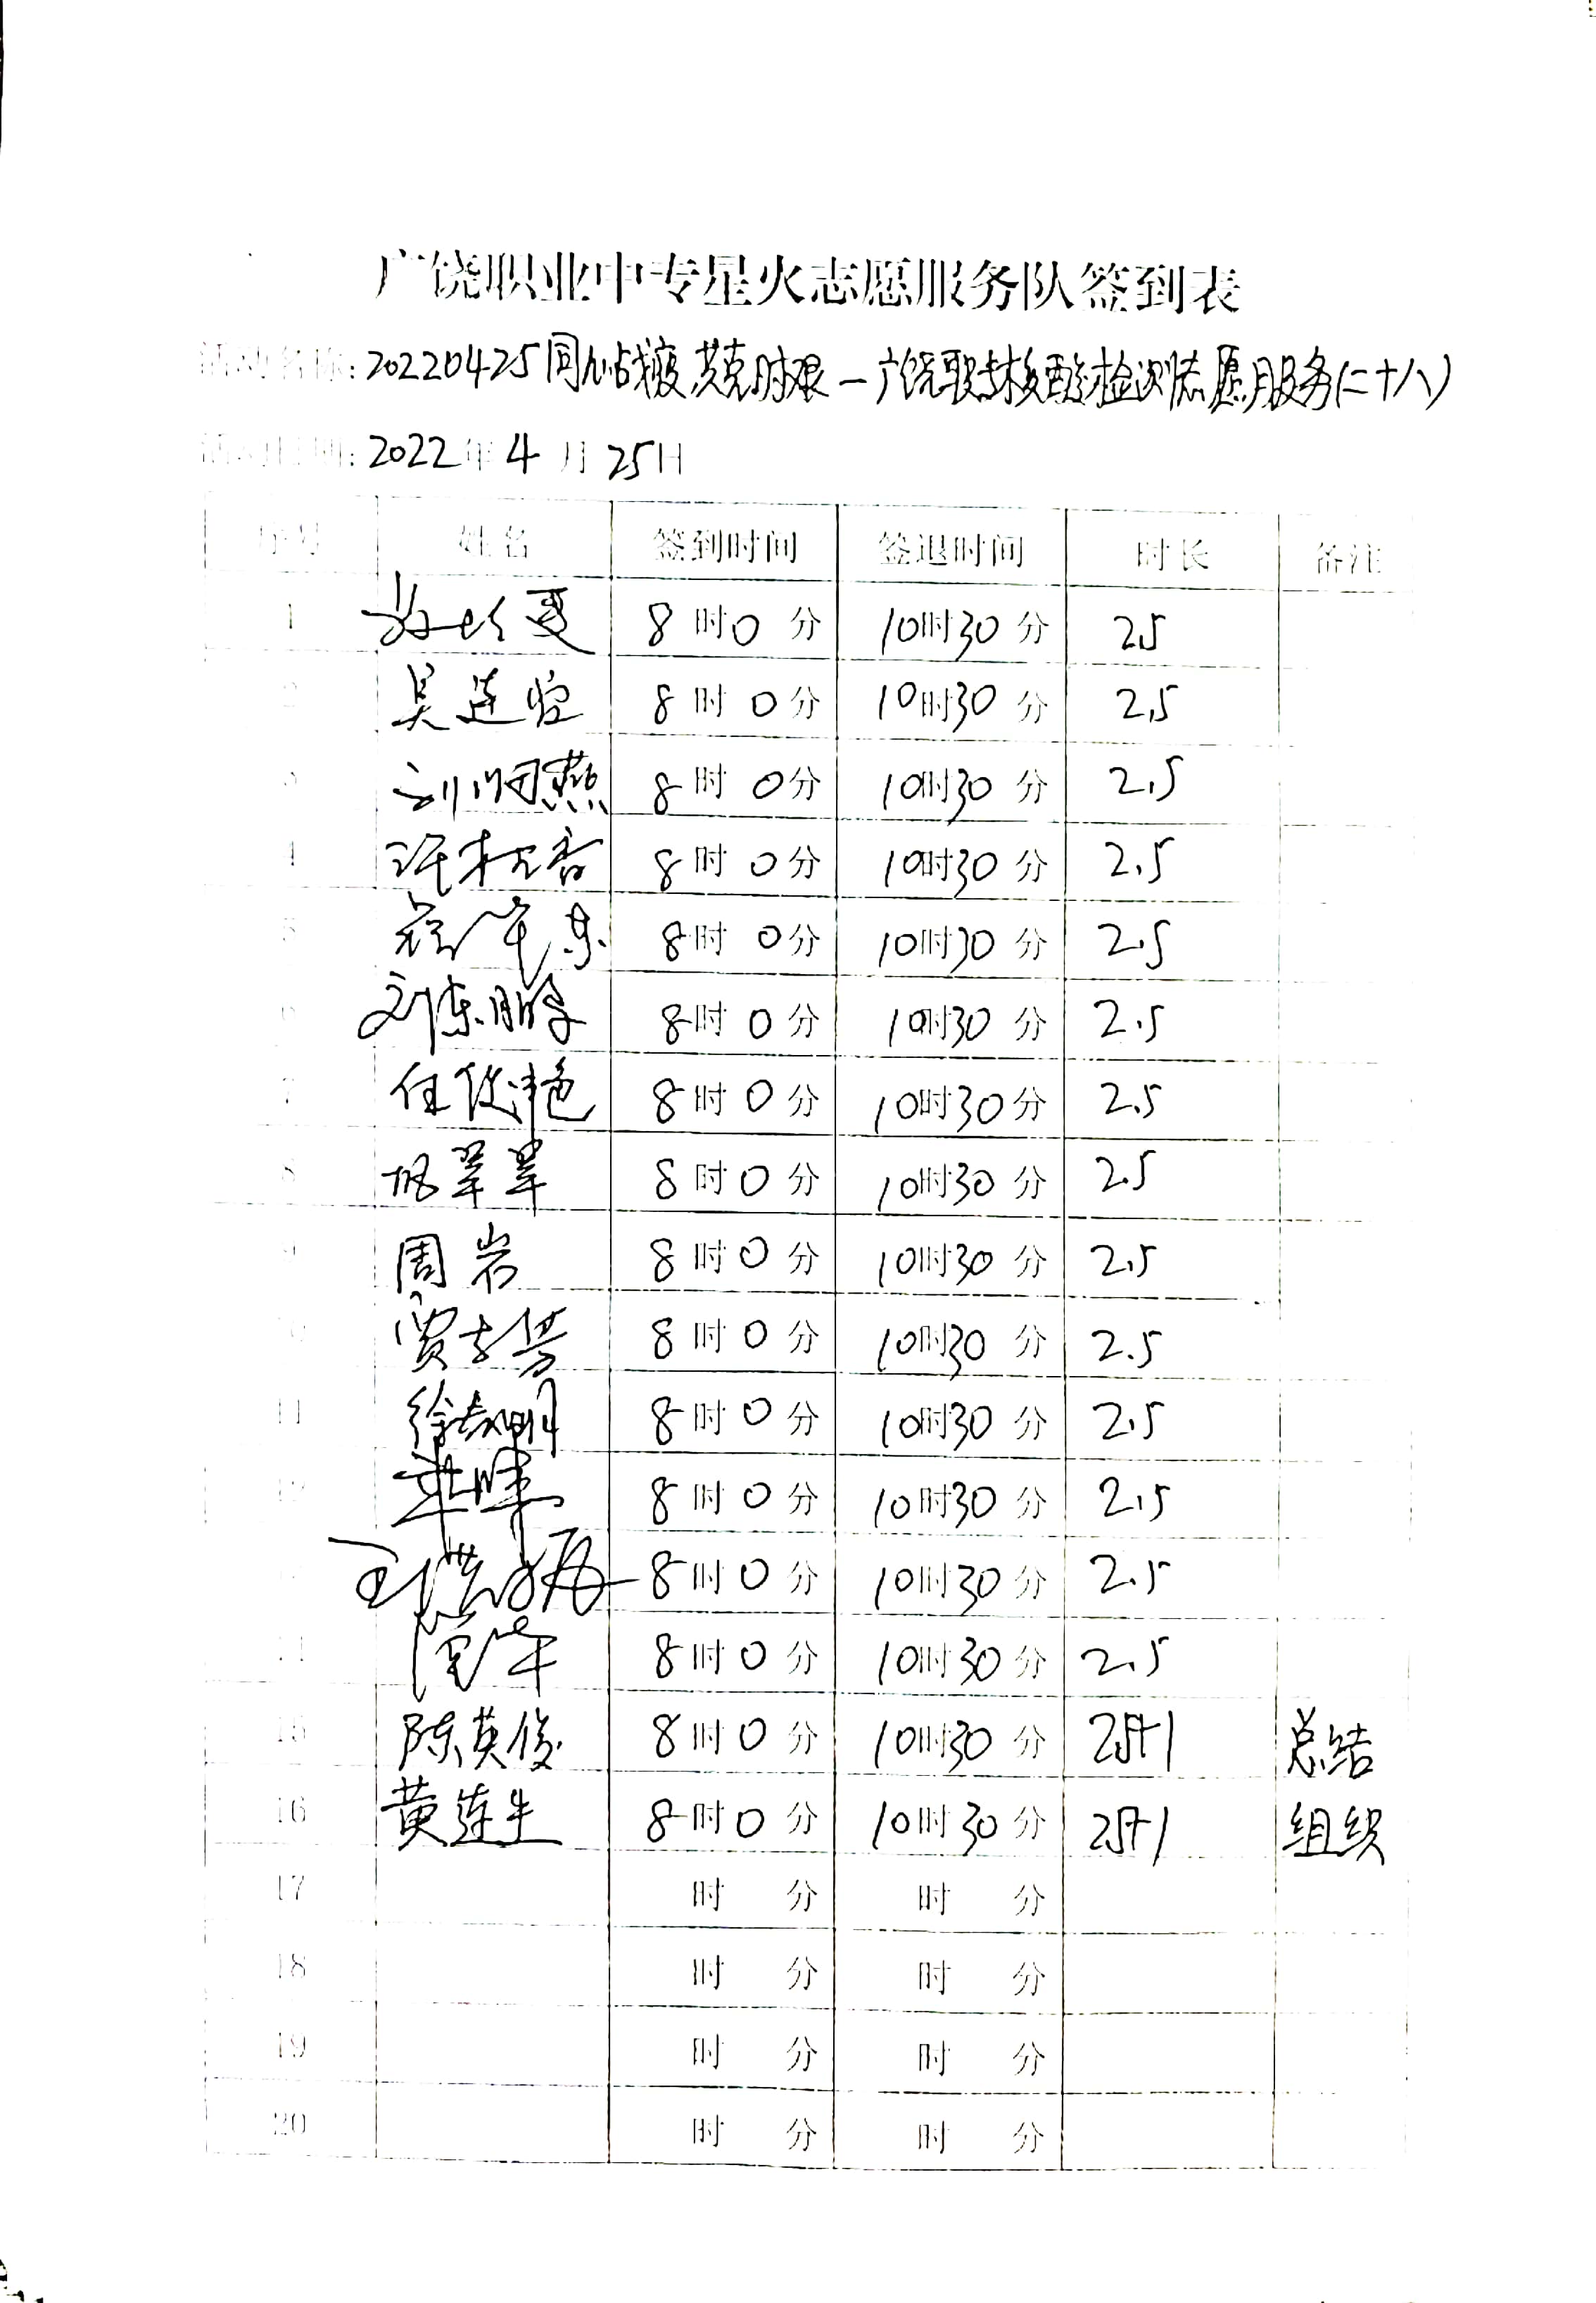 广饶职业中专星火志愿服务队签到表
活动名称:20220425同心战疫 共克时艰—广饶职专核酸检测志愿服务(二十八)
活动日期:2022年4月25日
序号 姓名 签到时间 签退时间 时长 备注
1 8时0分 10时30分 2.5
2 吴连 8时0分 10时30分 2.5
3 刘 燕 8时0分 10时30分 2.5
4 许 香 8时0分 10时30分 2.5
5 8时0分 10时30分 2.5
6 刘东鹏 8时0分 10时30分 2.5
7 任俊艳 8时0分 10时30分 2.5
8 翠翠 8时0分 10时30分 2.5
9 周岩 8时0分 10时30分 2.5
10 贾 芳 8时0分 10时30分 2.5
11 徐 明 8时0分 10时30分 2.5
12 8时0分 10时30分 2.5
13 8时0分 10时30分 2.5
14 8时0分 10时30分 2.5
15 陈英俊 8时0分 10时30分 2.5+1 总结
16 黄连生 8时0分 10时30分 2.5+1 组织
17 时 分 时 分
18 时 分 时 分
19 时 分 时 分
20 时 分 时 分